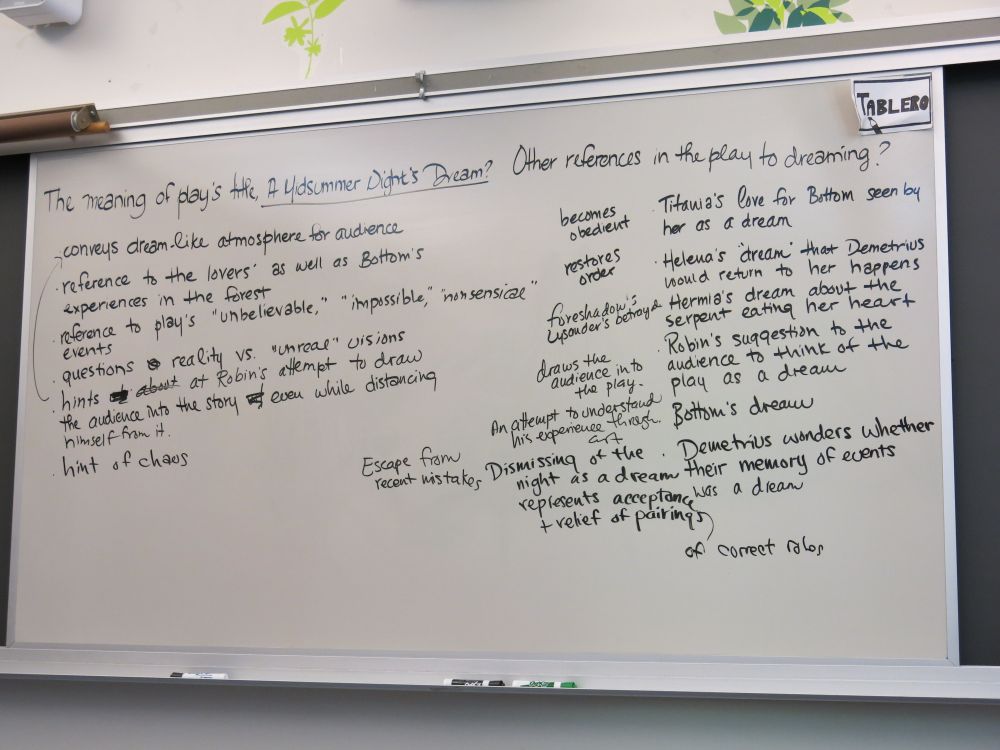 TABLERO
The meaning of play's title, A Midsummer Night's Dream? Other references in the play to dreaming?
· conveys dream-like atmosphere for audience
· reference to the lovers' as well as Bottom's
experiences in the forest
· reference to play's "unbelievable," "impossible," "nonsensical"
events
· questions reality vs. "unreal" visions
· hints about at Robin's attempt to draw
the audience into the story even while distancing
himself from it.
· hint of chaos
becomes
obedient
· Titania's love for Bottom seen by
her as a dream
restores
order
· Helena's "dream" that Demetrius
would return to her happens
foreshadow's
Lysander's betrayal
· Hermia's dream about the
serpent eating her heart
draws the
audience into
the play.
· Robin's suggestion to the
audience to think of the
play as a dream
An attempt to understand
his experience through
art
· Bottom's dream
Escape from
recent mistakes
Dismissing of the
night as a dream
represents acceptance
+ relief of pairings
· Demetrius wonders whether
their memory of events
was a dream
of correct